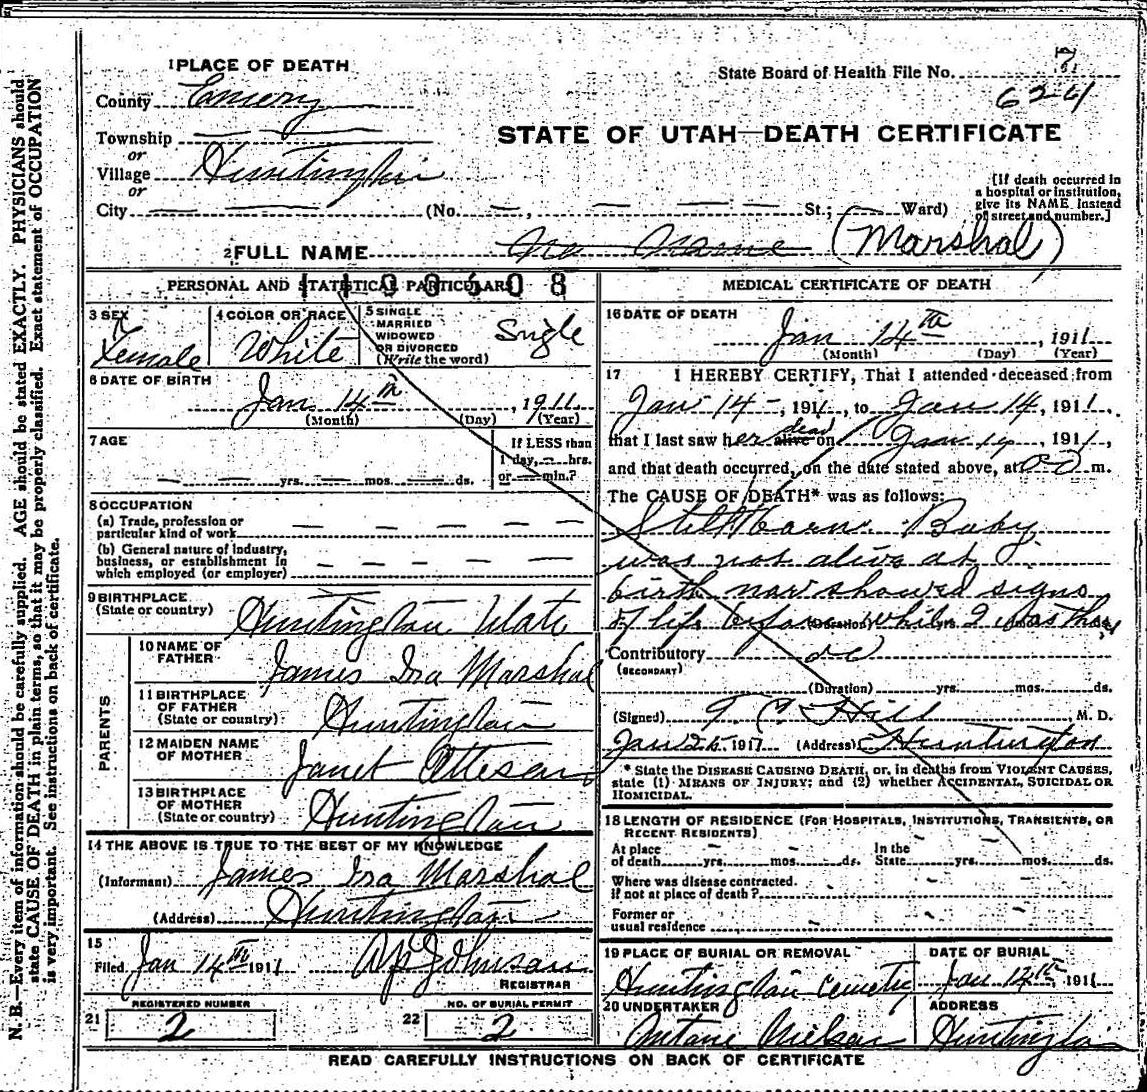 1 PLACE OF DEATH
State Board of Health File No. 7
County Emery
624
Township
STATE OF UTAH—DEATH CERTIFICATE
or
Village Huntington
or
City (No. , St.; Ward)
[If death occurred in
a hospital or institution,
give its NAME instead
of street and number.]
2 FULL NAME No Name (Marshal)
PERSONAL AND STATISTICAL PARTICULARS
3 SEX
Female
4 COLOR OR RACE
White
5 SINGLE
MARRIED
WIDOWED
OR DIVORCED
(Write the word)
Single
6 DATE OF BIRTH
Jan 14th, 1911
(Month) (Day) (Year)
7 AGE
If LESS than
1 day, — hrs.
or — min.?
— yrs. — mos. — ds.
8 OCCUPATION
(a) Trade, profession or
particular kind of work
(b) General nature of industry,
business, or establishment in
which employed (or employer)
9 BIRTHPLACE
(State or country) Huntington Utah
PARENTS
10 NAME OF
FATHER James Ira Marshal
11 BIRTHPLACE
OF FATHER
(State or country) Huntington
12 MAIDEN NAME
OF MOTHER Janet
13 BIRTHPLACE
OF MOTHER
(State or country) Huntington
14 THE ABOVE IS TRUE TO THE BEST OF MY KNOWLEDGE
(Informant) James Ira Marshal
(Address) Huntington
15
Filed Jan 14th 1911 Johnson
REGISTRAR
REGISTERED NUMBER
21 2
NO. OF BURIAL PERMIT
22 2
MEDICAL CERTIFICATE OF DEATH
16 DATE OF DEATH
Jan 14th, 1911
(Month) (Day) (Year)
17 I HEREBY CERTIFY, That I attended deceased from
Jan 14 -, 1911, to Jan 14, 1911,
that I last saw her alive dead on Jan 14, 1911,
and that death occurred, on the date stated above, at m.
The CAUSE OF DEATH* was as follows:
Still Born. Baby
was not alive at
birth nor showed signs
of life before while I was there
(Duration) yrs. mos. ds.
Contributory
(SECONDARY)
(Duration) yrs. mos. ds.
(Signed) Hill M. D.
Jan 25, 1911 (Address) Huntington
* State the DISEASE CAUSING DEATH, or, in deaths from VIOLENT CAUSES,
state (1) MEANS OF INJURY; and (2) whether ACCIDENTAL, SUICIDAL OR
HOMICIDAL.
18 LENGTH OF RESIDENCE (FOR HOSPITALS, INSTITUTIONS, TRANSIENTS, OR
RECENT RESIDENTS)
At place In the
of death yrs. mos. ds. State yrs. mos. ds.
Where was disease contracted.
If not at place of death?
Former or
usual residence
19 PLACE OF BURIAL OR REMOVAL
Huntington Cemetery
DATE OF BURIAL
Jan 14th, 1911
20 UNDERTAKER
Nielson
ADDRESS
Huntington
READ CAREFULLY INSTRUCTIONS ON BACK OF CERTIFICATE
N. B.—Every item of information should be carefully supplied. AGE should be stated EXACTLY. PHYSICIANS should
state CAUSE OF DEATH in plain terms, so that it may be properly classified. Exact statement of OCCUPATION
is very important. See instructions on back of certificate.